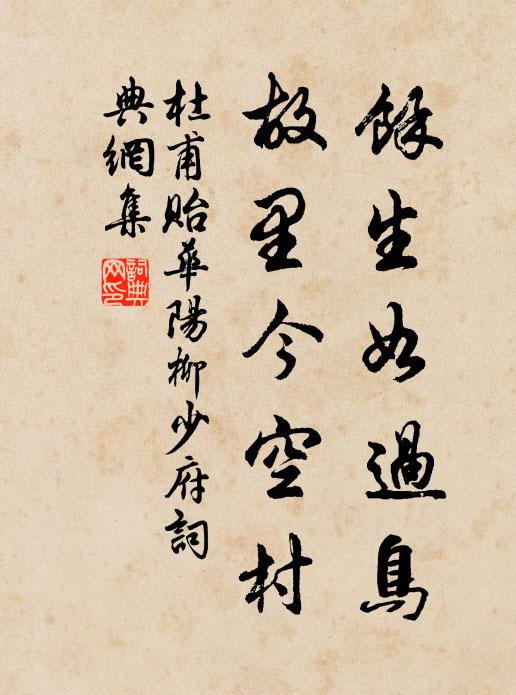 餘生如過鳥
故里今空村
杜甫貽華陽柳少府詞
典網集
詞典網印